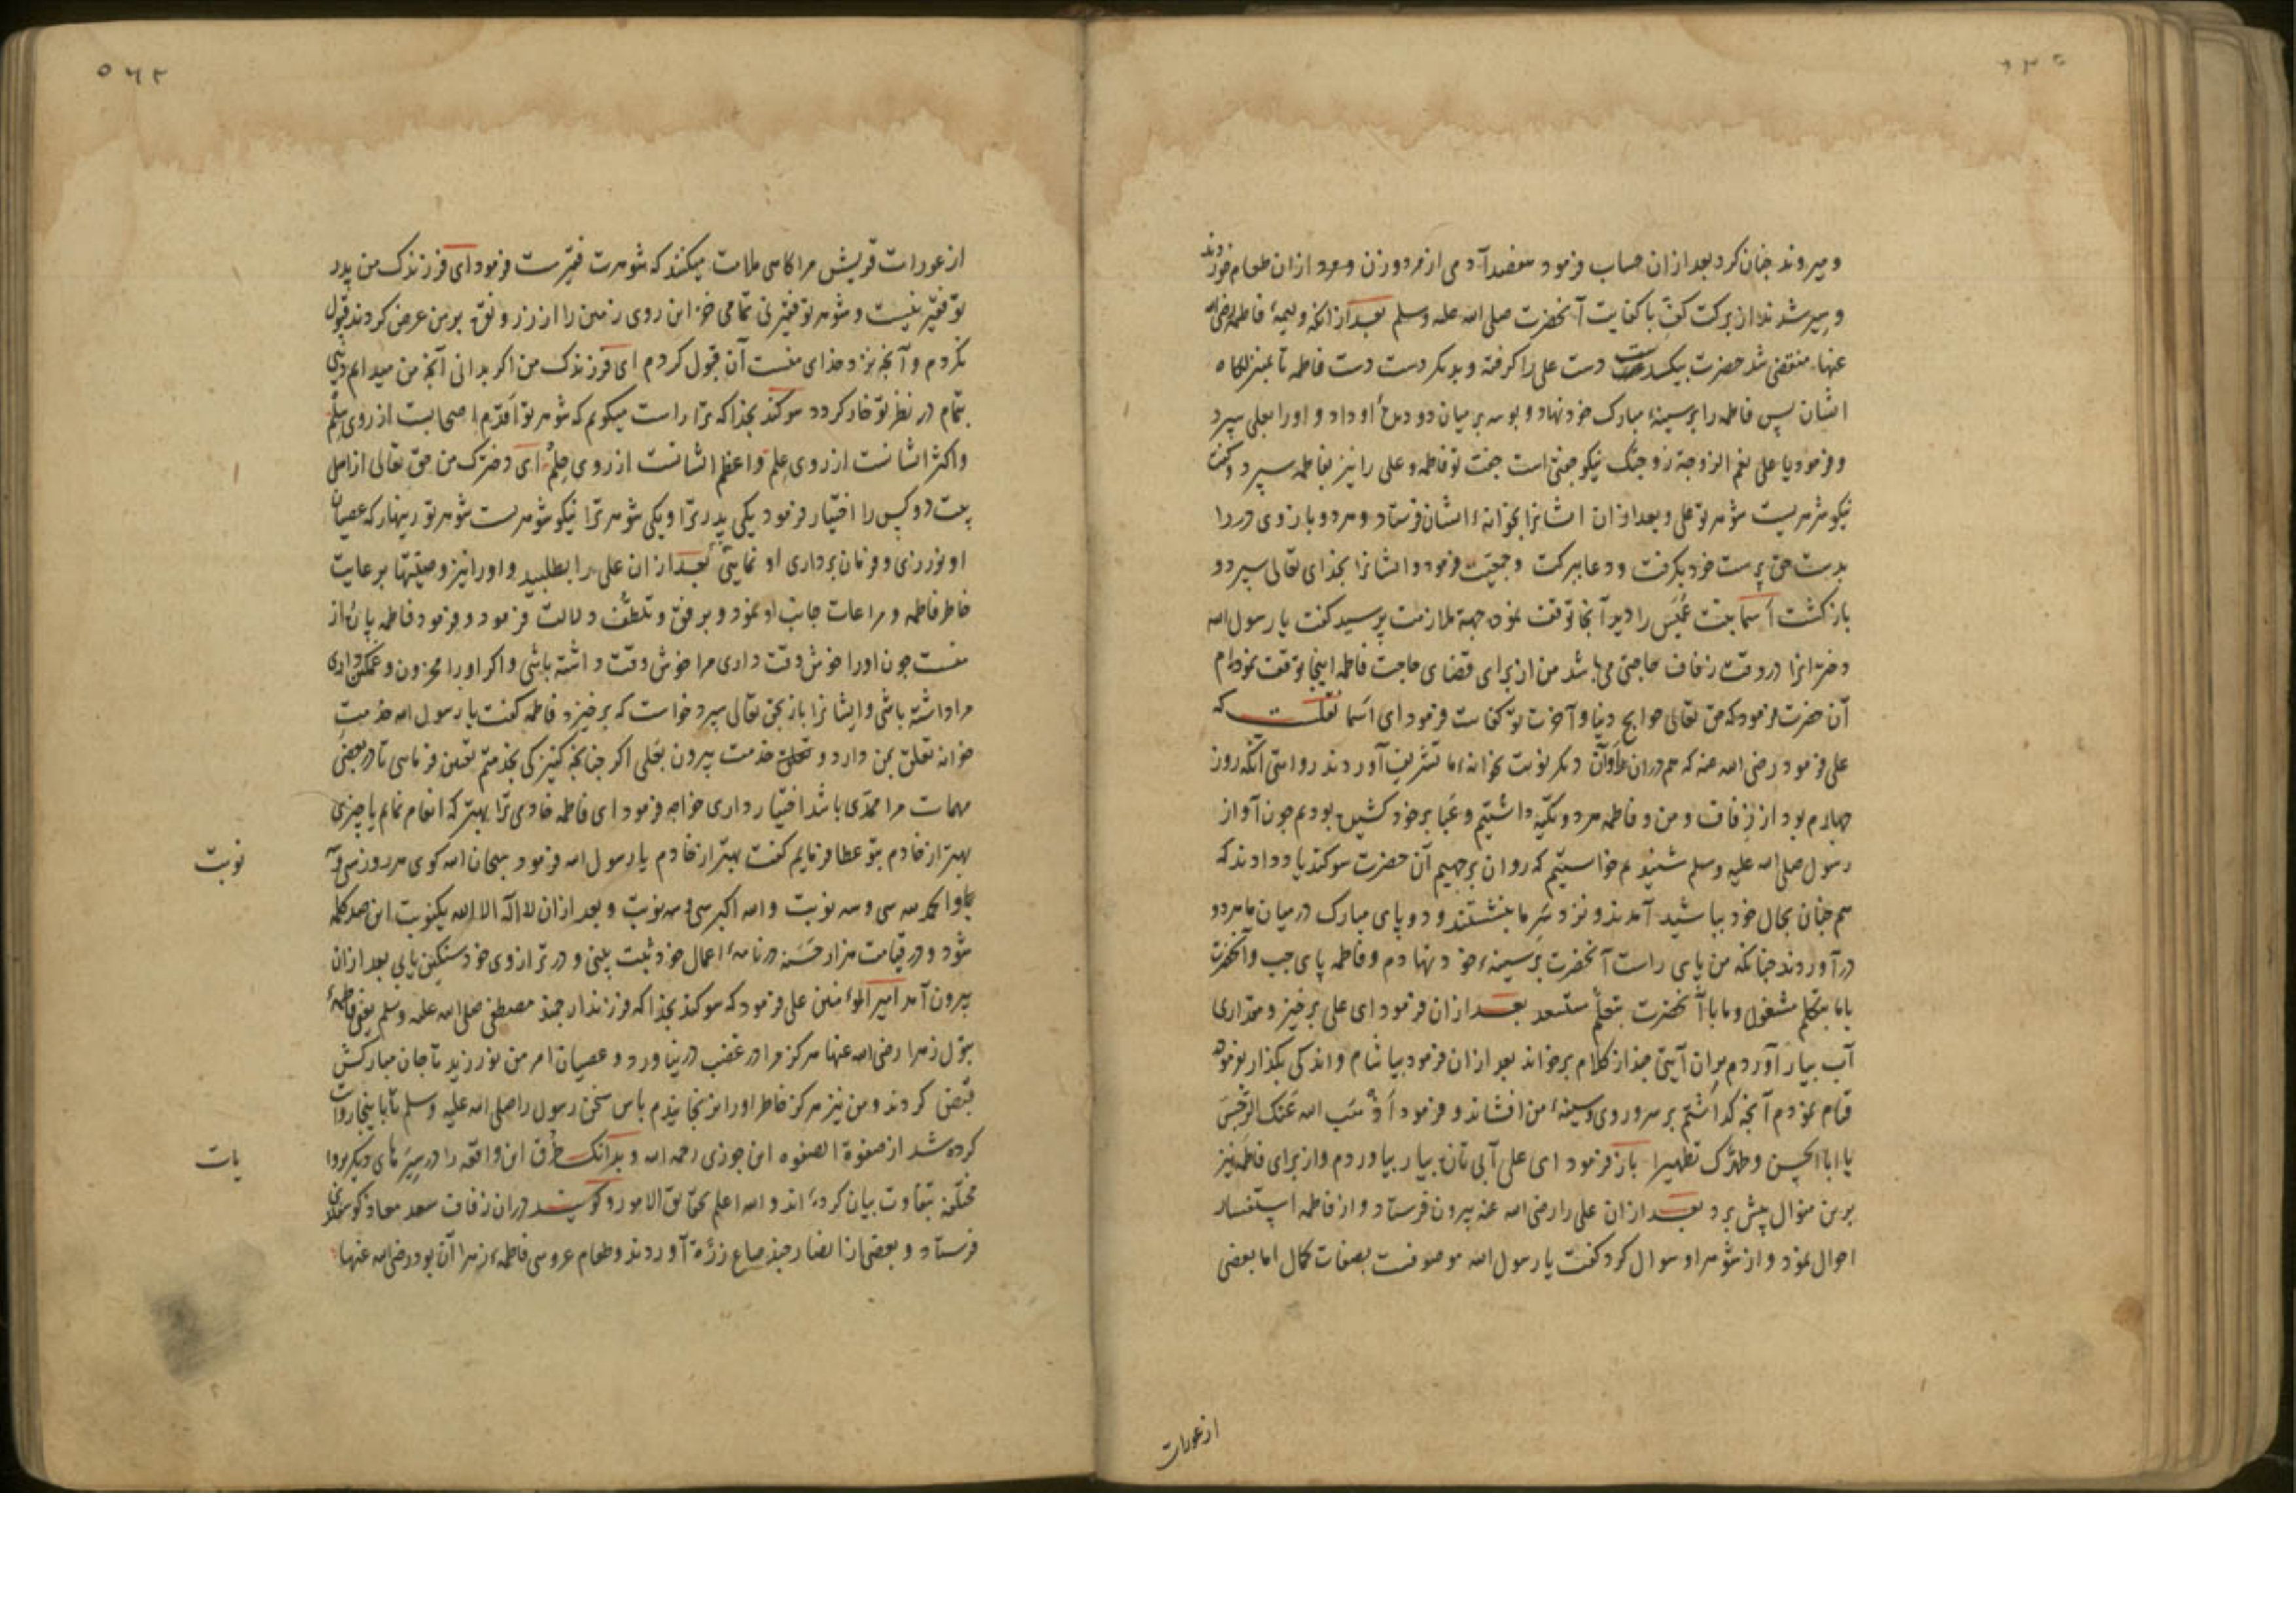 و میروند چنان کرد بعد از ان حساب فرمود هفصد آدمی از مرد و زن از ان طعام خوردند
و سیر شدند از برکت کف با کفایت آنحضرت صلی الله علیه وسلم بعد از انکه ولیمهٔ فاطمه رضی الله
عنها منقضی شد حضرت بیکدست دست علی را گرفته و بدیکر دست دست فاطمه تا بمنزلکاه
ایشان پس فاطمه را بر سینهٔ مبارک خود نهاد و بوسه بر میان دو او داد و او را بعلی سپرد
و فرمود یا علی نعم الزوجة زوجتک نیکو جفتی است جفت تو فاطمه و علی را نیز بفاطمه سپرد و گفت
نیکو شوهریست شوهر تو علی و بعد از ان ایشانرا بخانهٔ ایشان فرستاد و هر دو بازوی در را
بدست حق پرست خود بگرفت و دعا ببرکت و جمعیت فرمود و ایشانرا بخدای تعالی سپرد و
بازگشت اسما بنت عمیس را دید آنجا توقف نموده جهة ملازمت پرسید گفت یا رسول الله
دخترانرا در وقت زفاف حاجتی می باشد من از برای قضای حاجت فاطمه اینجا توقف نموده‌ام
آن حضرت فرمود که حق تعالی حوایج دنیا و آخرت تو کفایت فرمود ای اسما نقلست که
علی فرمود رضی الله عنه که هم دران اوان دیکر نوبت بخانهٔ ما تشریف آوردند روایتی انکه روز
چهارم بود از زفاف و من و فاطمه هر دو تکیه داشتیم و عبا بر خود کشیده بودیم چون آواز
رسول صلی الله علیه وسلم شنیدیم خواستیم که روان برجهیم آن حضرت سوکند یاد دادند که
هم چنان بحال خود بباشید آمدند و نزد سر ما بنشستند و دو پای مبارک درمیان ما هر دو
درآوردند چنانکه من پای راست آنحضرت بر سینهٔ خود نهادم و فاطمه پای چپ و آنحضرت
با ما بتکلم مشغول و ما با آنحضرت بتعلم مستسعد بعد از ان فرمود ای علی برخیز و مقداری
آب بیار آوردم بران آیتی چند از کلام برخواند بعد از ان فرمود بیاشام و اندکی بگذار بفرموده
قیام نمودم آنچه گذاشتم بر سر و روی و سینهٔ من افشاند و فرمود اذهب الله عنک الرجس
یا ابا الحسن و طهرک تطهیرا باز فرمود ای علی آبی تازه بیار بیاوردم و از برای فاطمه نیز
برین منوال پیش برد بعد از ان علی را رضی الله عنه بیرون فرستاد و از فاطمه استفسار
احوال نمود و از شوهر او سوال کرد گفت یا رسول الله موصوفست بصفات کمال اما بعضی
از عورات
٥٦٢
از عورات قریش مرا کاهی ملامت میکنند که شوهرت فقیرست فرمود ای فرزندک من پدر
تو فقیر نیست و شوهر تو فقیر نی تمامی خزاین روی زمین را از زر و نقره بر من عرض کردند قبول
نکردم و آنچه نزد خدای منست آن قبول کردم ای فرزندک من اکر بدانی آنچه من میدانم دنیی
بتمام در نظر تو خار کردد سوکند بخدا که ترا راست میکویم که شوهر تو اقدم اصحابست از روی سلم
و اکثر ایشانست از روی علم و اعظم ایشانست از روی حلم ای دخترک من حق تعالی از اهل
بیت دو کس را اختیار فرمود یکی پدر ترا و یکی شوهر ترا نیکو شوهرست شوهر تو زینهار که عصیان
او نورزی و فرمان برداری او نمایی بعد از ان علی را بطلبید و او را نیز وصیتها برعایت
خاطر فاطمه و مراعات جانب او نمود و برفق و تلطف دلالت فرمود و فرمود فاطمه پاره از
منست چون او را خوش وقت داری مرا خوش وقت داشته باشی و اکر او را محزون و غمکین داری
مرا داشته باشی و ایشانرا باز بحق تعالی سپرد خواست که برخیزد فاطمه گفت یا رسول الله خدمت
خانه تعلق بمن دارد و خدمت بیرون بعلی اکر چنانچه کنیزکی بخدمتم تعیین فرمایی تا در بعضی
مهمات مرا ممدی باشد اختیار داری خواجه فرمود ای فاطمه خادمی ترا بهتر که انعام نمایم یا چیزی
بهتر از خادم بتو عطا فرمایم گفت بهتر از خادم یا رسول الله فرمود سبحان الله کوی هر روز سی و سه
نوبت
والحمد لله سی و سه نوبت و الله اکبر سی و سه نوبت و بعد از ان لا اله الا الله یکنوبت این صد کلمه
شود و در قیامت هزار حسنه در نامهٔ اعمال خود ثبت بینی و در ترازوی خود سنکین یابی بعد از ان
بیرون آمد امیر المؤمنین علی فرمود که سوکند بخدا که فرزند ارجمند مصطفی صلی الله علیه وسلم یعنی فاطمهٔ
بتول زهرا رضی الله عنها هرکز مرا در غضب درنیاورد و عصیان امر من نورزید تا جان مبارکش
قبض کردند و من نیز هرکز خاطر او را نرنجانیدم پاس سخن رسول را صلی الله علیه وسلم تا باینجا روایت
کرده شد از صفوة الصفوه ابن جوزی رحمه الله و بدانک طرق این واقعه را در سیر های دیکر بروا
یات
مختلفه بتفاوت بیان کرده‌اند و الله اعلم بحقایق الامور و گویند دران زفاف سعد معاذ گوسفندی
فرستاد و بعضی از انصار چند صاع ذرة آوردند و طعام عروسی فاطمهٔ زهرا آن بود رضی الله عنها